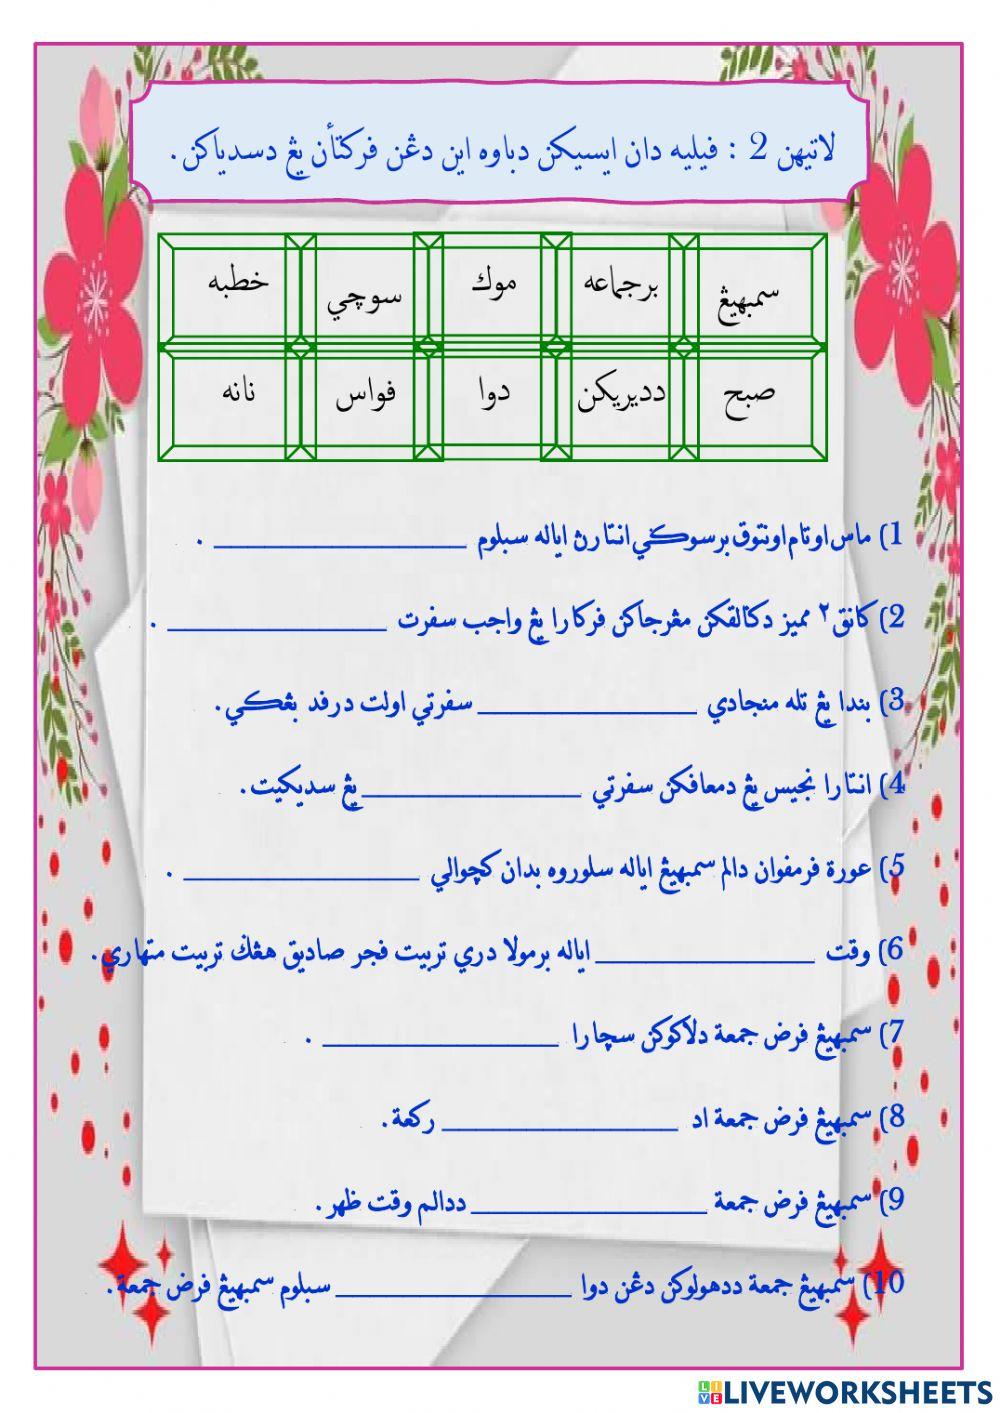 لاتيهن 2 : فيليه دان ايسيكن دباوه اين دڠن فركتأن يڠ دسدياكن.
سمبهيڠ برجماعه موك سوچي خطبه
صبح دديريكن دوا فواس نانه
1) ماس اوتام اونتوق برسوݢي انتارڽ اياله سبلوم ____________________ .
2) كانق٢ مميز دݢالقكن مڠرجاكن فركارا يڠ واجب سفرت ____________________ .
3) بندا يڠ تله منجادي ____________________ سفرتي اولت درفد بڠكي.
4) انتارا نجيس يڠ دمعافكن سفرتي ____________________ يڠ سديكيت.
5) عورة فرمفوان دالم سمبهيڠ اياله سلوروه بدان كچوالي ____________________ .
6) وقت ____________________ اياله برمولا دري تربيت فجر صاديق هڠݢ تربيت متهاري.
7) سمبهيڠ فرض جمعة دلاكوكن سچارا ____________________ .
8) سمبهيڠ فرض جمعة اد ____________________ ركعة.
9) سمبهيڠ فرض جمعة ____________________ ددالم وقت ظهر.
10) سمبهيڠ جمعة ددهولوكن دڠن دوا ____________________ سبلوم سمبهيڠ فرض جمعة.
LIVEWORKSHEETS